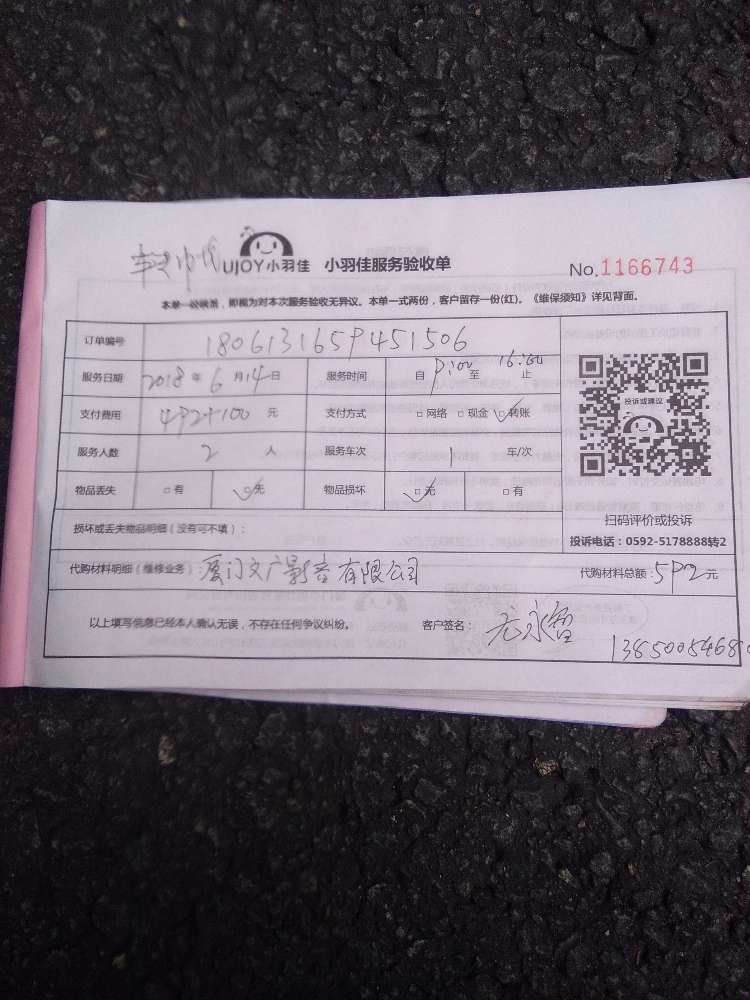 UJOY小羽佳 小羽佳服务验收单 No.1166743
本单一经填写，即视为对本次服务验收无异议。本单一式两份，客户留存一份(红)。《维保须知》详见背面。
订单编号 1806131659451506
服务日期 2018年6月14日 服务时间 自9:00至16:00止
支付费用 492+100元 支付方式 □网络 □现金 ☑转账
投诉或建议
服务人数 2人 服务车次 1车/次
物品丢失 □有 ☑无 物品损坏 ☑无 □有
扫码评价或投诉
损坏或丢失物品明细（没有可不填）：
投诉电话：0592-5178888转2
代购材料明细（维修业务）：厦门文广影音有限公司 代购材料总额：592元
以上填写信息已经本人确认无误，不存在任何争议纠纷。 客户签名：